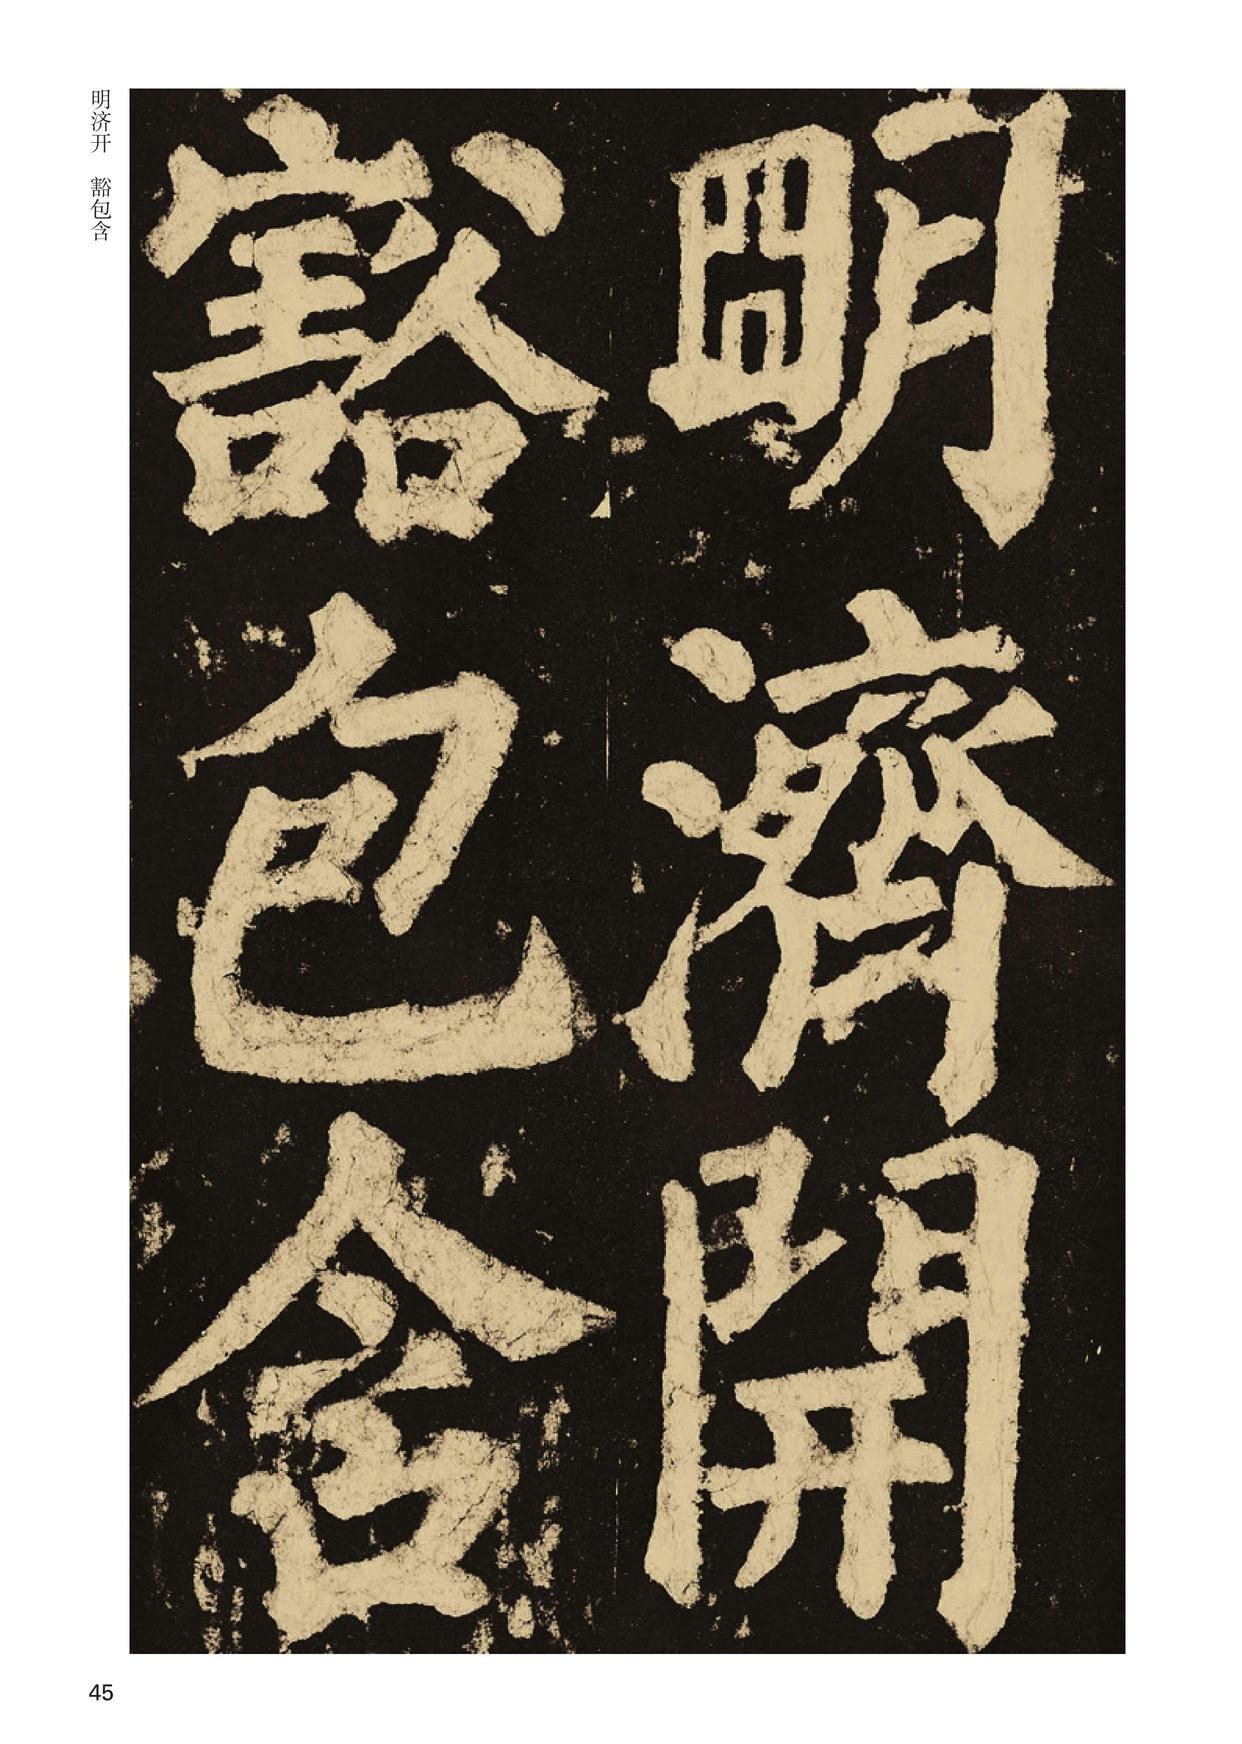 明濟開
豁包含
明济开 豁包含
45